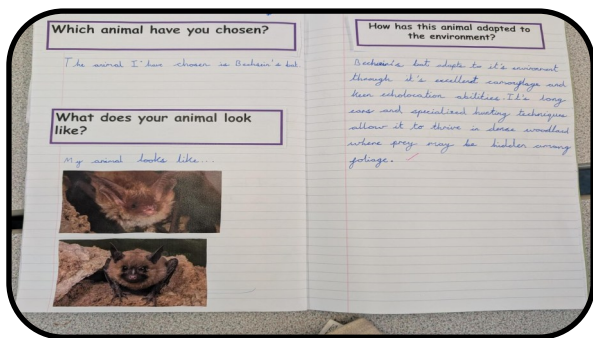 Which animal have you chosen?
The animal I have chosen is Bechsin's bat
What does your animal look
like?
My animal looks like...
How has this animal adapted to
the environment?
Bechsin's bat adapts to it's environment
through it's excellent camouflage and
keen echolocation abilities. It's long
ears and specialised hunting techniques
allow it to thrive in dense woodland
where prey may be hidden among
foliage.